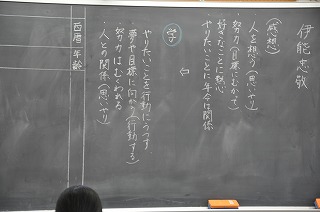 伊能忠敬
(感想)
・人を想う(思いやり)
・努力(目標にむかって)
・好きなことに熱心
・やりたいことに年令は関係
⇦
学
・やりたいことを行動にうつす。
・夢や目標に向かう(行動する)
・努力はむくわれる
・人との関係(思いやり)
西暦
年齢